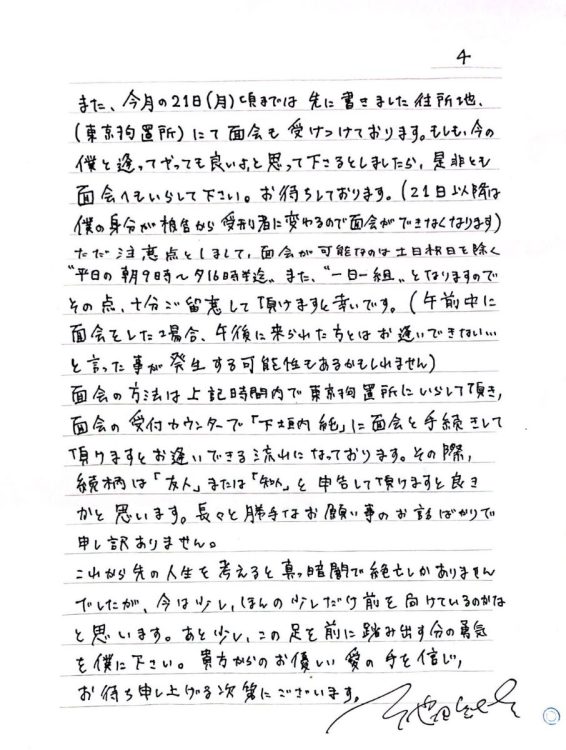 4
また、今月の21日(月)頃までは 先に書きました住所地、
(東京拘置所)にて面会も受けつけております。もしも、今の
僕と逢ってやっても良いよ、と思って下さるとしましたら、是非とも
面会へもいらして下さい。お待ちしております。(21日以降は
僕の身分が被告から受刑者に変わるので面会ができなくなります)
ただ注意点としまして、面会が可能なのは土日祝日を除く
"平日の朝9時〜夕16時半迄" また、"一日一組" となりますので
その点、十分ご留意して頂けますと幸いです。(午前中に
面会をした場合、午後に来られた方とはお逢いできない…
と言った事が発生する可能性もあるかもしれません)
面会の方法は上記時間内で東京拘置所にいらして頂き、
面会の受付カウンターで「下垣内 純」に面会と手続きして
頂けますとお逢いできる流れになっております。その際、
続柄は「友人」または「知人」と申告して頂けますと良き
かと思います。長々と勝手なお願い事のお話ばかりで
申し訳ありません。
これから先の人生を考えると真っ暗闇で絶望しかありません
でしたが、今は少し、ほんの少しだけ前を向けているのかな
と思います。あと少し、この足を前に踏み出す分の勇気
を僕に下さい。貴方からのお優しい愛の手を信じ、
お待ち申し上げる次第にございます。